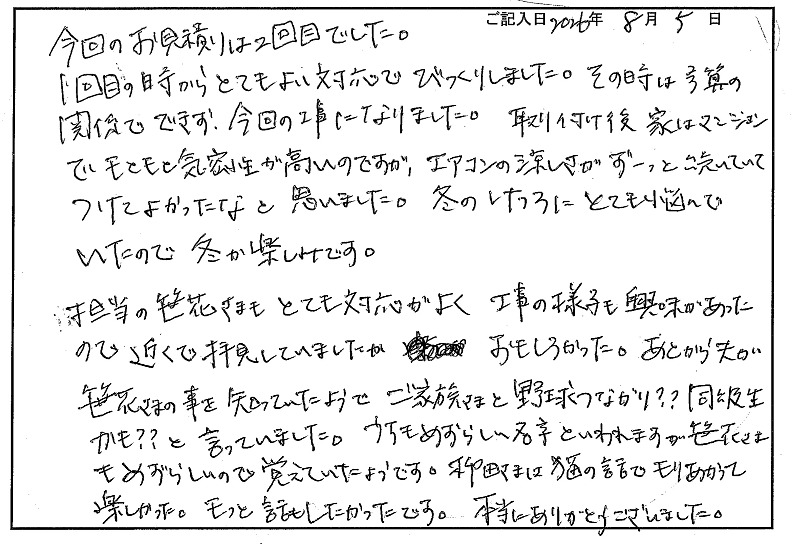 ご記入日2026年 8月 5日
今回のお見積りは2回目でした。
1回目の時からとてもよい対応でびっくりしました。その時は予算の
関係でできず、今回の工事になりました。 取り付け後 家はマンション
でもともと気密性が高いのですが、エアコンの涼しさがずーっと続いていて
つけてよかったなと 思いました。 冬のけつろにとても悩んで
いたので 冬が楽しみです。
担当の笹花さまも とても対応がよく 工事の様子も興味があった
ので 近くで拝見していましたが おもしろかった。あとから夫が
笹花さまの事を知っていたようで ご家族さまと野球つながり??同級生
かも??と言っていました。 うちもめずらしい名字といわれますが笹花さま
もめずらしいので覚えていたようです。柳田さまは猫の話でもりあがって
楽しかった。もっと話もしたかったです。 本当にありがとうございました。